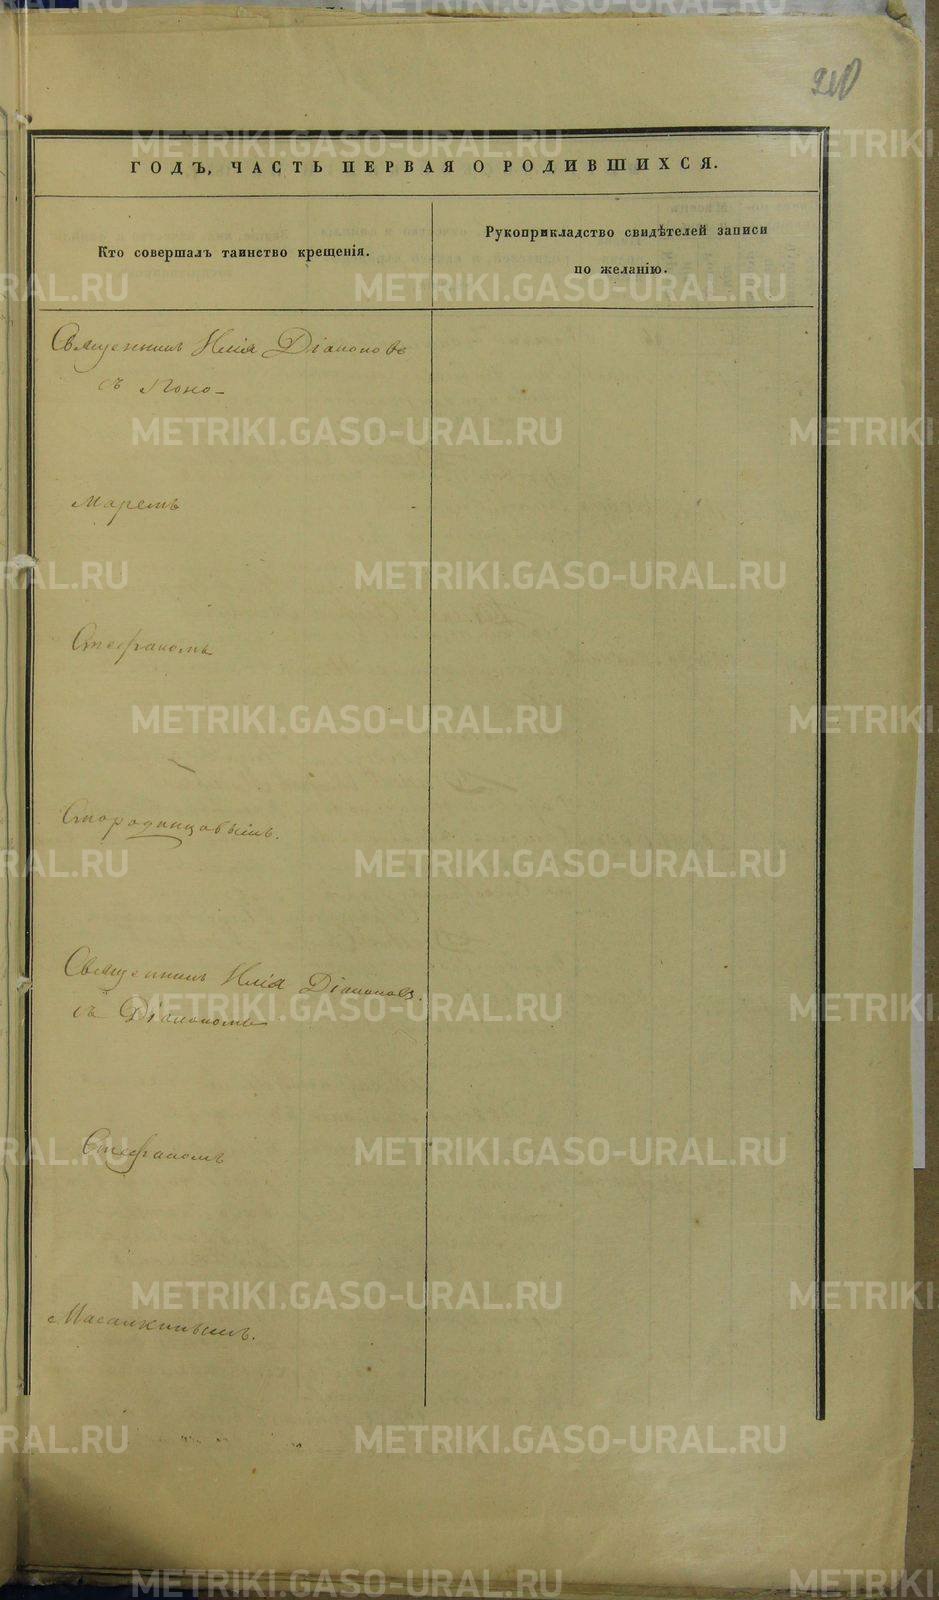 210
ГОДЪ, ЧАСТЬ ПЕРВАЯ О РОДИВШИХСЯ.
Кто совершалъ таинство крещенія.
Рукоприкладство свидѣтелей записи
по желанію.
Священникъ Илія Діаконовъ
съ Поно-
маремъ
Стефаномъ
Стародинцовымъ.
Священникъ Илія Діаконовъ.
съ Діакономъ
Стефаномъ
METRIKI.GASO-URAL.RU